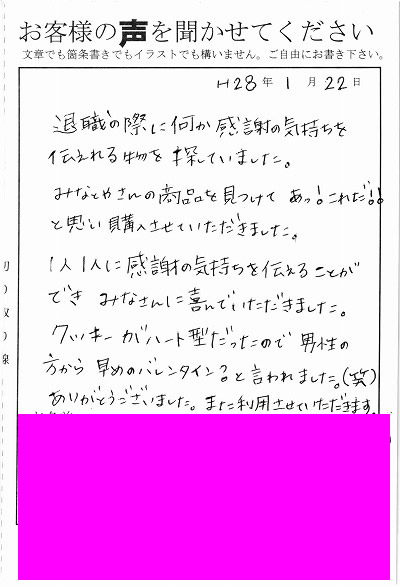 お客様の声を聞かせてください
文章でも箇条書きでもイラストでも構いません。ご自由にお書き下さい。
H28年1月22日
退職の際に何か感謝の気持ちを
伝えれる物を探していました。
みなとやさんの商品を見つけて あっ!これだ!!
と思い購入させていただきました。
1人1人に感謝の気持ちを伝えることが
でき みなさんに喜んでいただきました。
クッキーがハート型だったので男性の
方から早めのバレンタイン?と言われました。(笑)
ありがとうございました。また利用させていただきます。